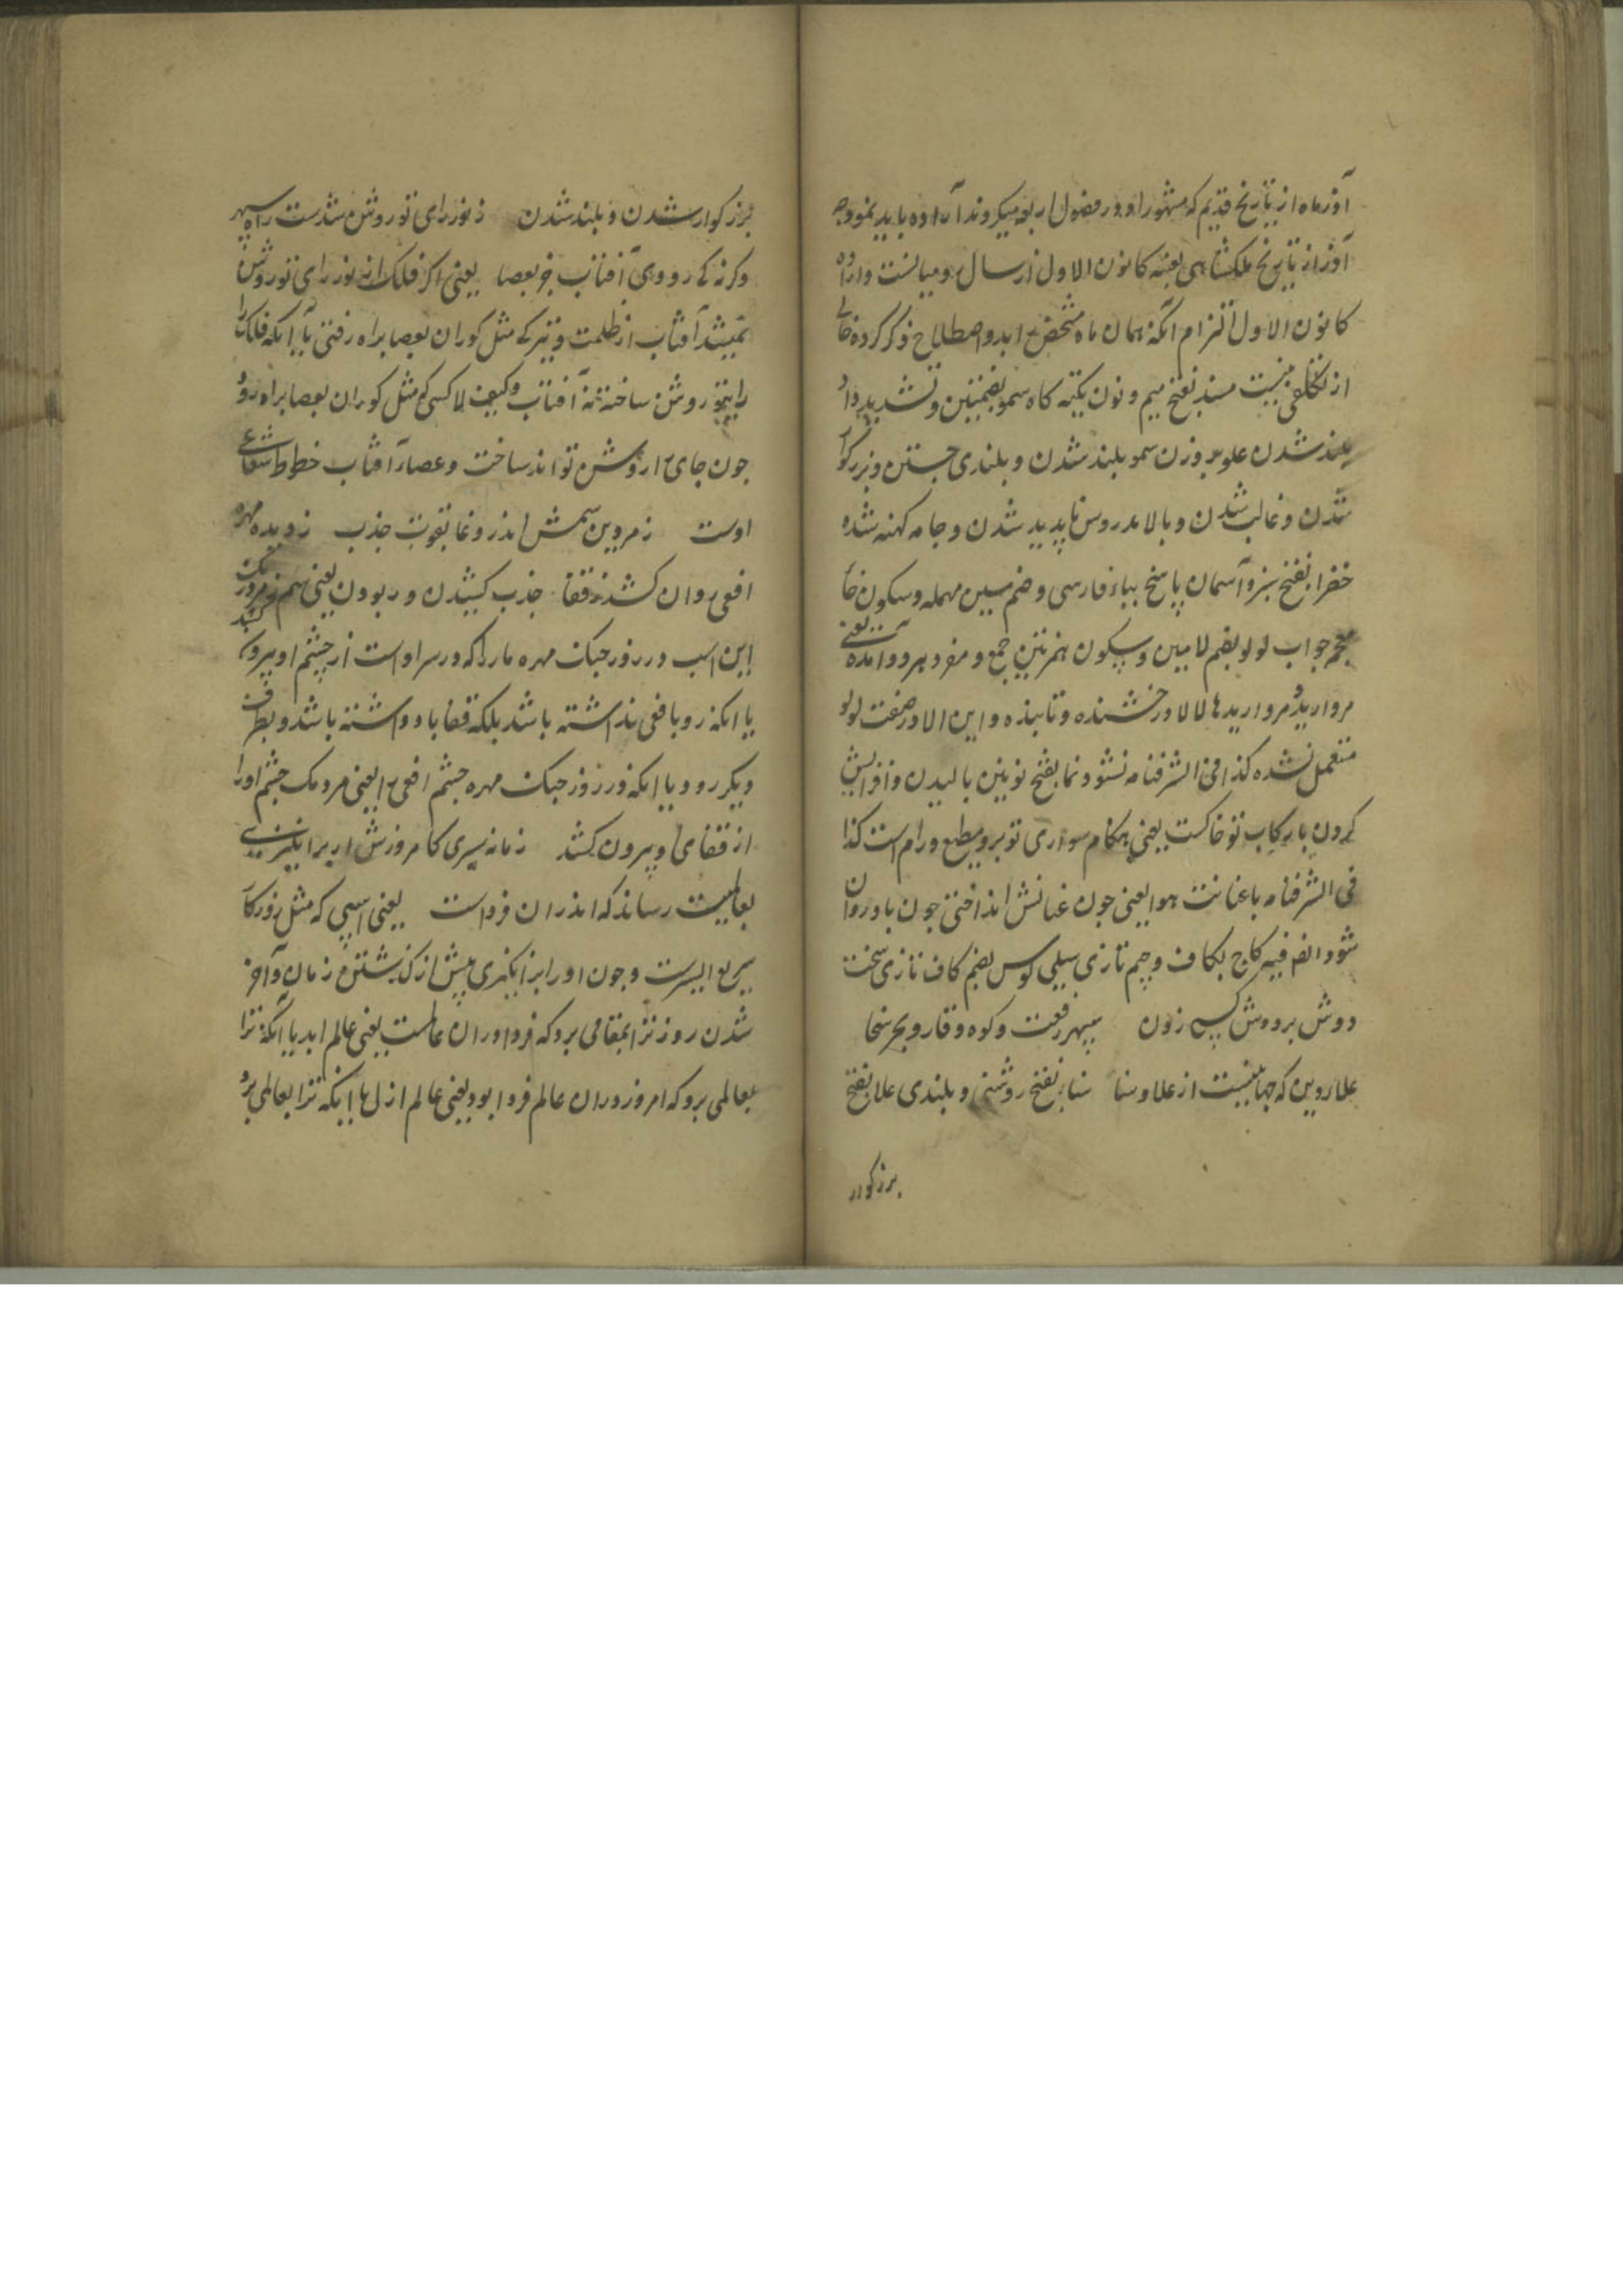 آذر ماه از تاریخ قدیم که مشهور او در فصول اربعه میکردند آن اراده باید نمود چه
آذر از تاریخ ملکشاهی بعینه کانون الاول از سال رومیانست و اراده
کانون الاول التزام آنکه همان ماه مشخص بدو اصطلاح ذکر کرده خالی
از تکلفی نیست مسند بفتح میم و نون تکیه کاه سمو بضمتین و تشدید واو
بلند شدن علو بر وزن سمو بلند شدن و بلندی جستن و بزرگوار
شدن و غالب شدن و بالا مدروس ناپدید شدن و جامه کهنه شده
خضرا بفتح سبز و آسمان پاسخ بباء فارسی و ضم سین مهمله و سکون خاء
معجم جواب لولو بضم لامین و سکون همزتین جمع و مفرد هر دو آمده است یعنی
مروارید و مرواریدها لالا درخشنده و تابنده و این لالا در صفت لولو
مستعمل شده کذا فی الشرفنامه نشو و نما بفتح نونین بالیدن و افزایش
کردن با رکاب تو خاکست یعنی هنگام سواری تو بر و مطیع و رام است کذا
فی الشرفنامه با عنانت هوا یعنی چون عنانش انداختی چون باد روان
شود انفر فیه کاج بکاف و جیم تازی سیلی کوس بضم کاف تازی سخت
دوش بر دوش کسی زدن سپهر رفعت و کوه وقار و بحر سخا
علاء دین که جهانیست از علا و سنا سنا بفتح روشنی و بلندی علا بفتح
بزرکوار
بزرکوار شدن و بلند شدن ز نور رای تو روشن شدست راه سپهر
وکرنه کی رودی آفتاب جز بعصا یعنی اکر فلک از نور رای تو روشن
نمیشد آفتاب از ظلمت و تیرکی مثل کوران بعصا براه رفتی یا آنکه فلک را
رایتو روشن ساخته نه آفتاب و کیف لا کسی که مثل کوران بعصا براه رود
چون جای را روشن تواند ساخت و عصاء آفتاب خطوط شعاعی
اوست ز مردین سمش اندر وغا بقوت جذب ز دیده مهره
افعی روان کشد ز قفا جذب کشیدن و ربودن یعنی سم زمرد رنگ
این اسب در روز جنک مهره مار را که در سر اوست از چشم او بیرون کشد
یا آنکه رو با فعی نداشته باشد بلکه قفا باد داشته باشد و بطرف
دیکر رود یا آنکه در روز جنک مهره چشم افعی را یعنی مردمک چشم او را
از قفای او بیرون کشد زمانه سیری کامروزش ار برانکیزی
بعالمیت رساند که اندران فرداست یعنی اسپی که مثل روزکار
سریع السیرست و چون او را برانکیزی پیش از کذشتن زمان و آخر
شدن روز ترا بمقامی برد که فردا در ان عالمست یعنی عالم ابد یا آنکه ترا
بعالمی برد که امروز در ان عالم فردا بود یعنی عالم ازل یا آنکه ترا بعالمی برد